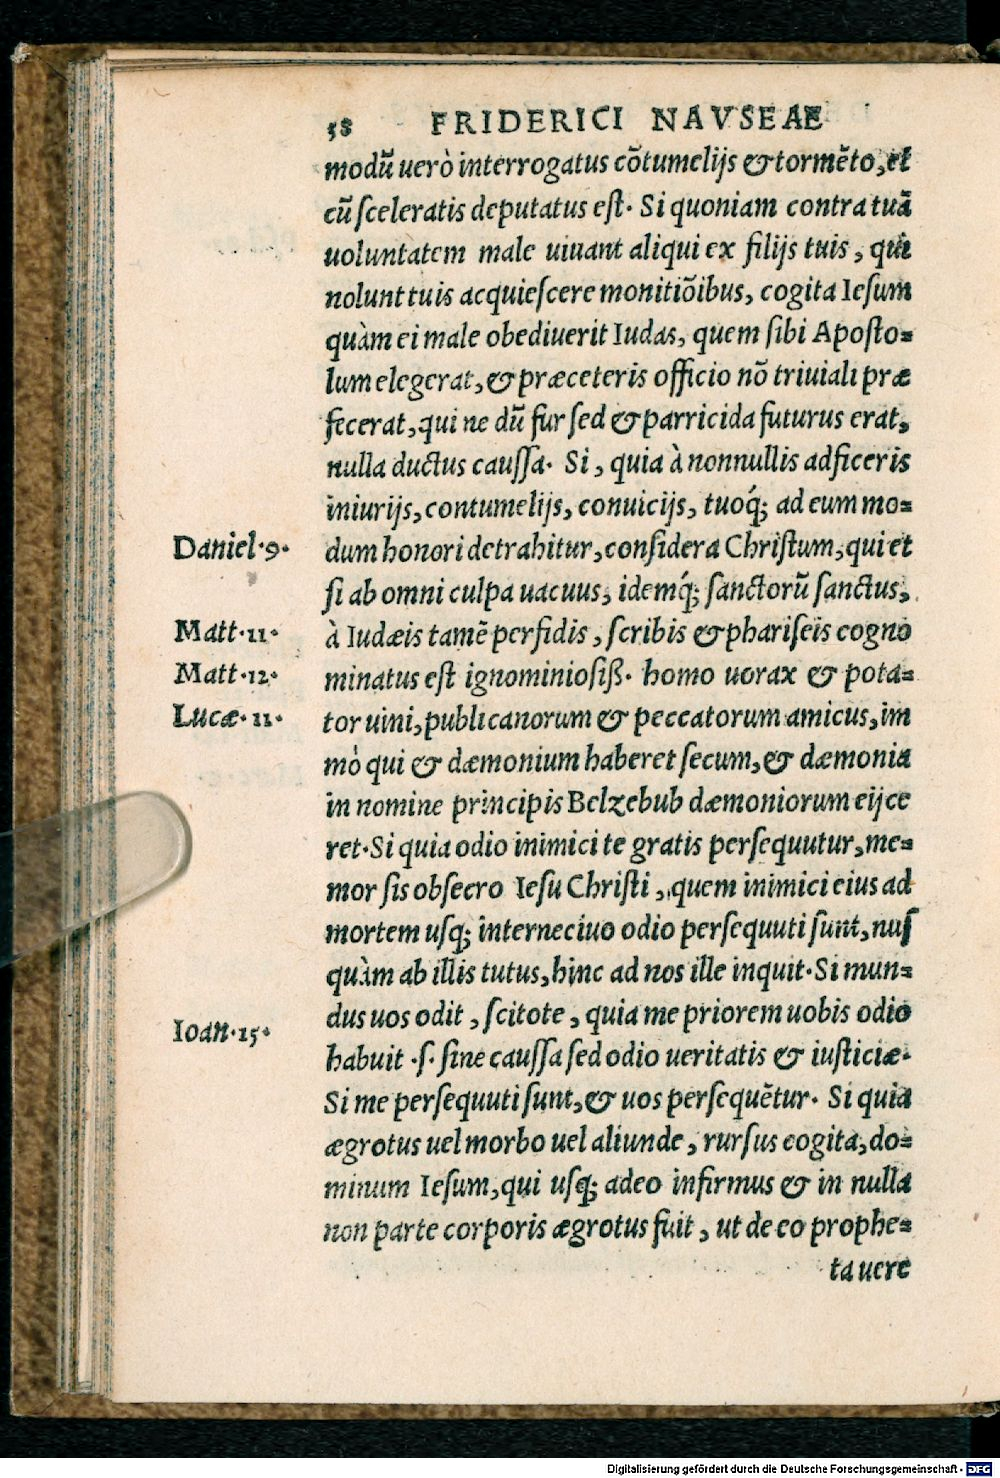 58 FRIDERICI NAVSEAE
modũ uerò interrogatus cõtumelijs & tormẽto, et
cũ sceleratis deputatus est. Si quoniam contra tuã
uoluntatem male uiuant aliqui ex filijs tuis, qui
nolunt tuis acquiescere monitiõibus, cogita Iesum
quàm ei male obediuerit Iudas, quem sibi Aposto=
lum elegerat, & præceteris officio nõ triuiali præ
fecerat, qui ne dũ fur sed & parricida futurus erat,
nulla ductus caussa. Si, quia à nonnullis adficeris
iniurijs, contumelijs, conuicijs, tuoq́; ad eum mo=
Daniel.9. dum honori detrahitur, considera Christum, qui et
si ab omni culpa uacuus, idemq́; sanctorũ sanctus,
Matt.11. à Iudæis tamẽ perfidis, scribis & phariseis cogno
Matt.12. minatus est ignominiosiß. homo uorax & pota=
Lucæ.11. tor uini, publicanorum & peccatorum amicus, im
mò qui & dæmonium haberet secum, & dæmonia
in nomine principis Belzebub dæmoniorum eijce
ret. Si quia odio inimici te gratis persequutur, me=
mor sis obsecro Iesu Christi, quem inimici eius ad
mortem usq; interneciuo odio persequuti sunt, nus
quàm ab illis tutus, hinc ad nos ille inquit. Si mun=
dus uos odit, scitote, quia me priorem uobis odio
Ioan.15. habuit .s. sine caussa sed odio ueritatis & iusticiæ.
Si me persequuti sunt, & uos persequẽtur. Si quia
ægrotus uel morbo uel aliunde, rursus cogita, do=
minum Iesum, qui usq; adeo infirmus & in nulla
non parte corporis ægrotus fuit, ut de eo prophe=
ta uere
Digitalisierung gefördert durch die Deutsche Forschungsgemeinschaft - DFG